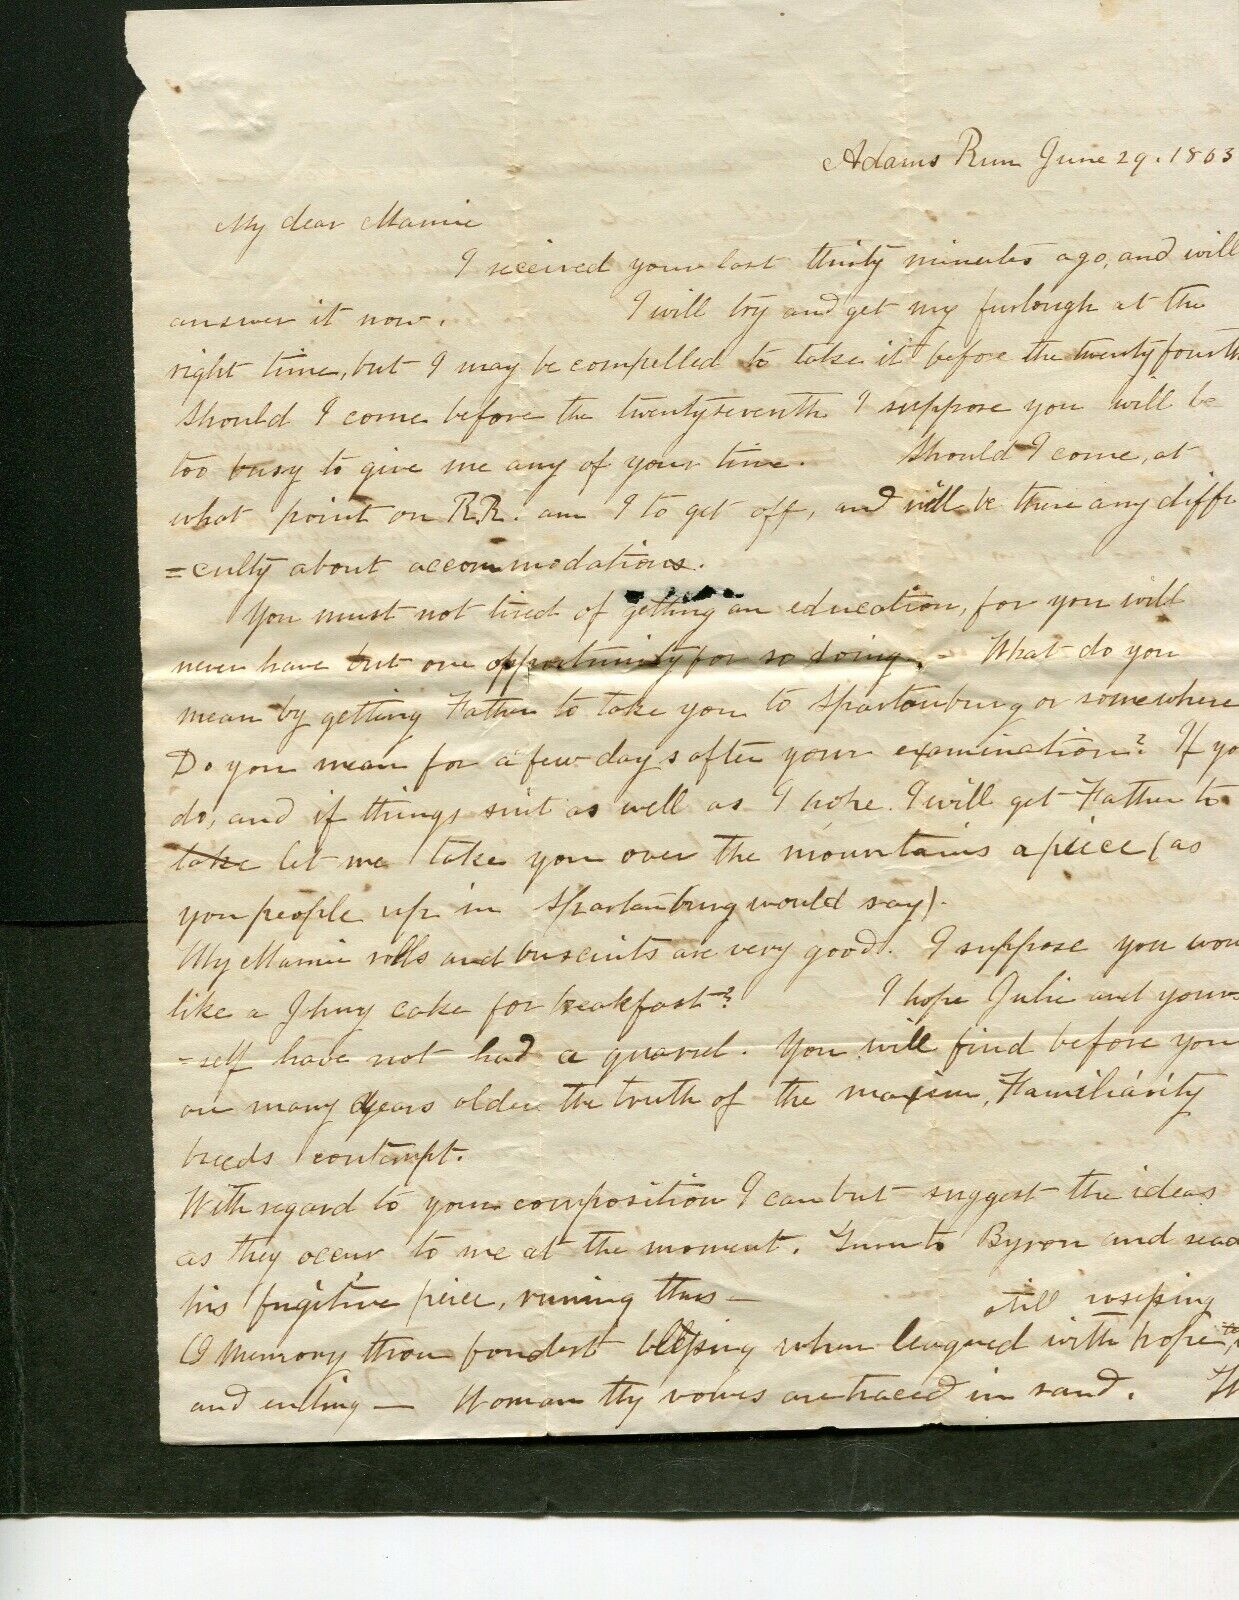 Adams Run June 29. 1863
My dear Mamie
I received your last thirty minutes ago, and will
answer it now. I will try and get my furlough at the
right time, but I may be compelled to take it before the twenty fourth
Should I come before the twenty seventh I suppose you will be
too busy to give me any of your time. Should I come, at
what point on R.R. am I to get off, and will be there any diffi
=culty about accommodations.
You must not tired of getting an education, for you will
never have but one opportunity for so doing. - What do you
mean by getting Father to take you to Spartanburg or somewhere
Do you mean for a few days after your examination? If yo
do, and if things suit as well as I hope I will get Father to
take let me take you over the mountains a piece (as
you people up in Spartanburg would say).
My Mamie rolls and buscuits are very good. I suppose you wou
like a Jhny cake for breakfast? I hope Julie and your=
=self have not had a quarrel. You will find before you
are many years older the truth of the maxim, Familiarity
breeds contempt.
With regard to your composition I can but suggest the ideas
as they occur to me at the moment. Turn to Byron and read
his fugitive piece, runing thus —
still
O Memory thou fondest blessing when leagued with hope
and ending — Woman thy vows are traced in sand.